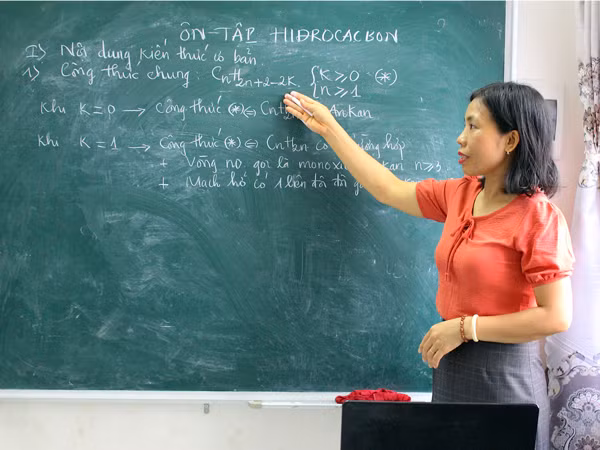 ÔN TẬP HIĐROCACBON
I) Nội dung kiến thức cơ bản.
1) Công thức chung: CnH2n+2-2k. { k ≥ 0 (*)
n ≥ 1
Khi K = 0 → Công thức (*) ⇔ CnH2n Ankan
Khi K = 1 → Công thức (*) ⇔ CnH2n có
+ Vòng no gọi là kan n ≥ 3
+ Mạch hở có 1 liên đôi